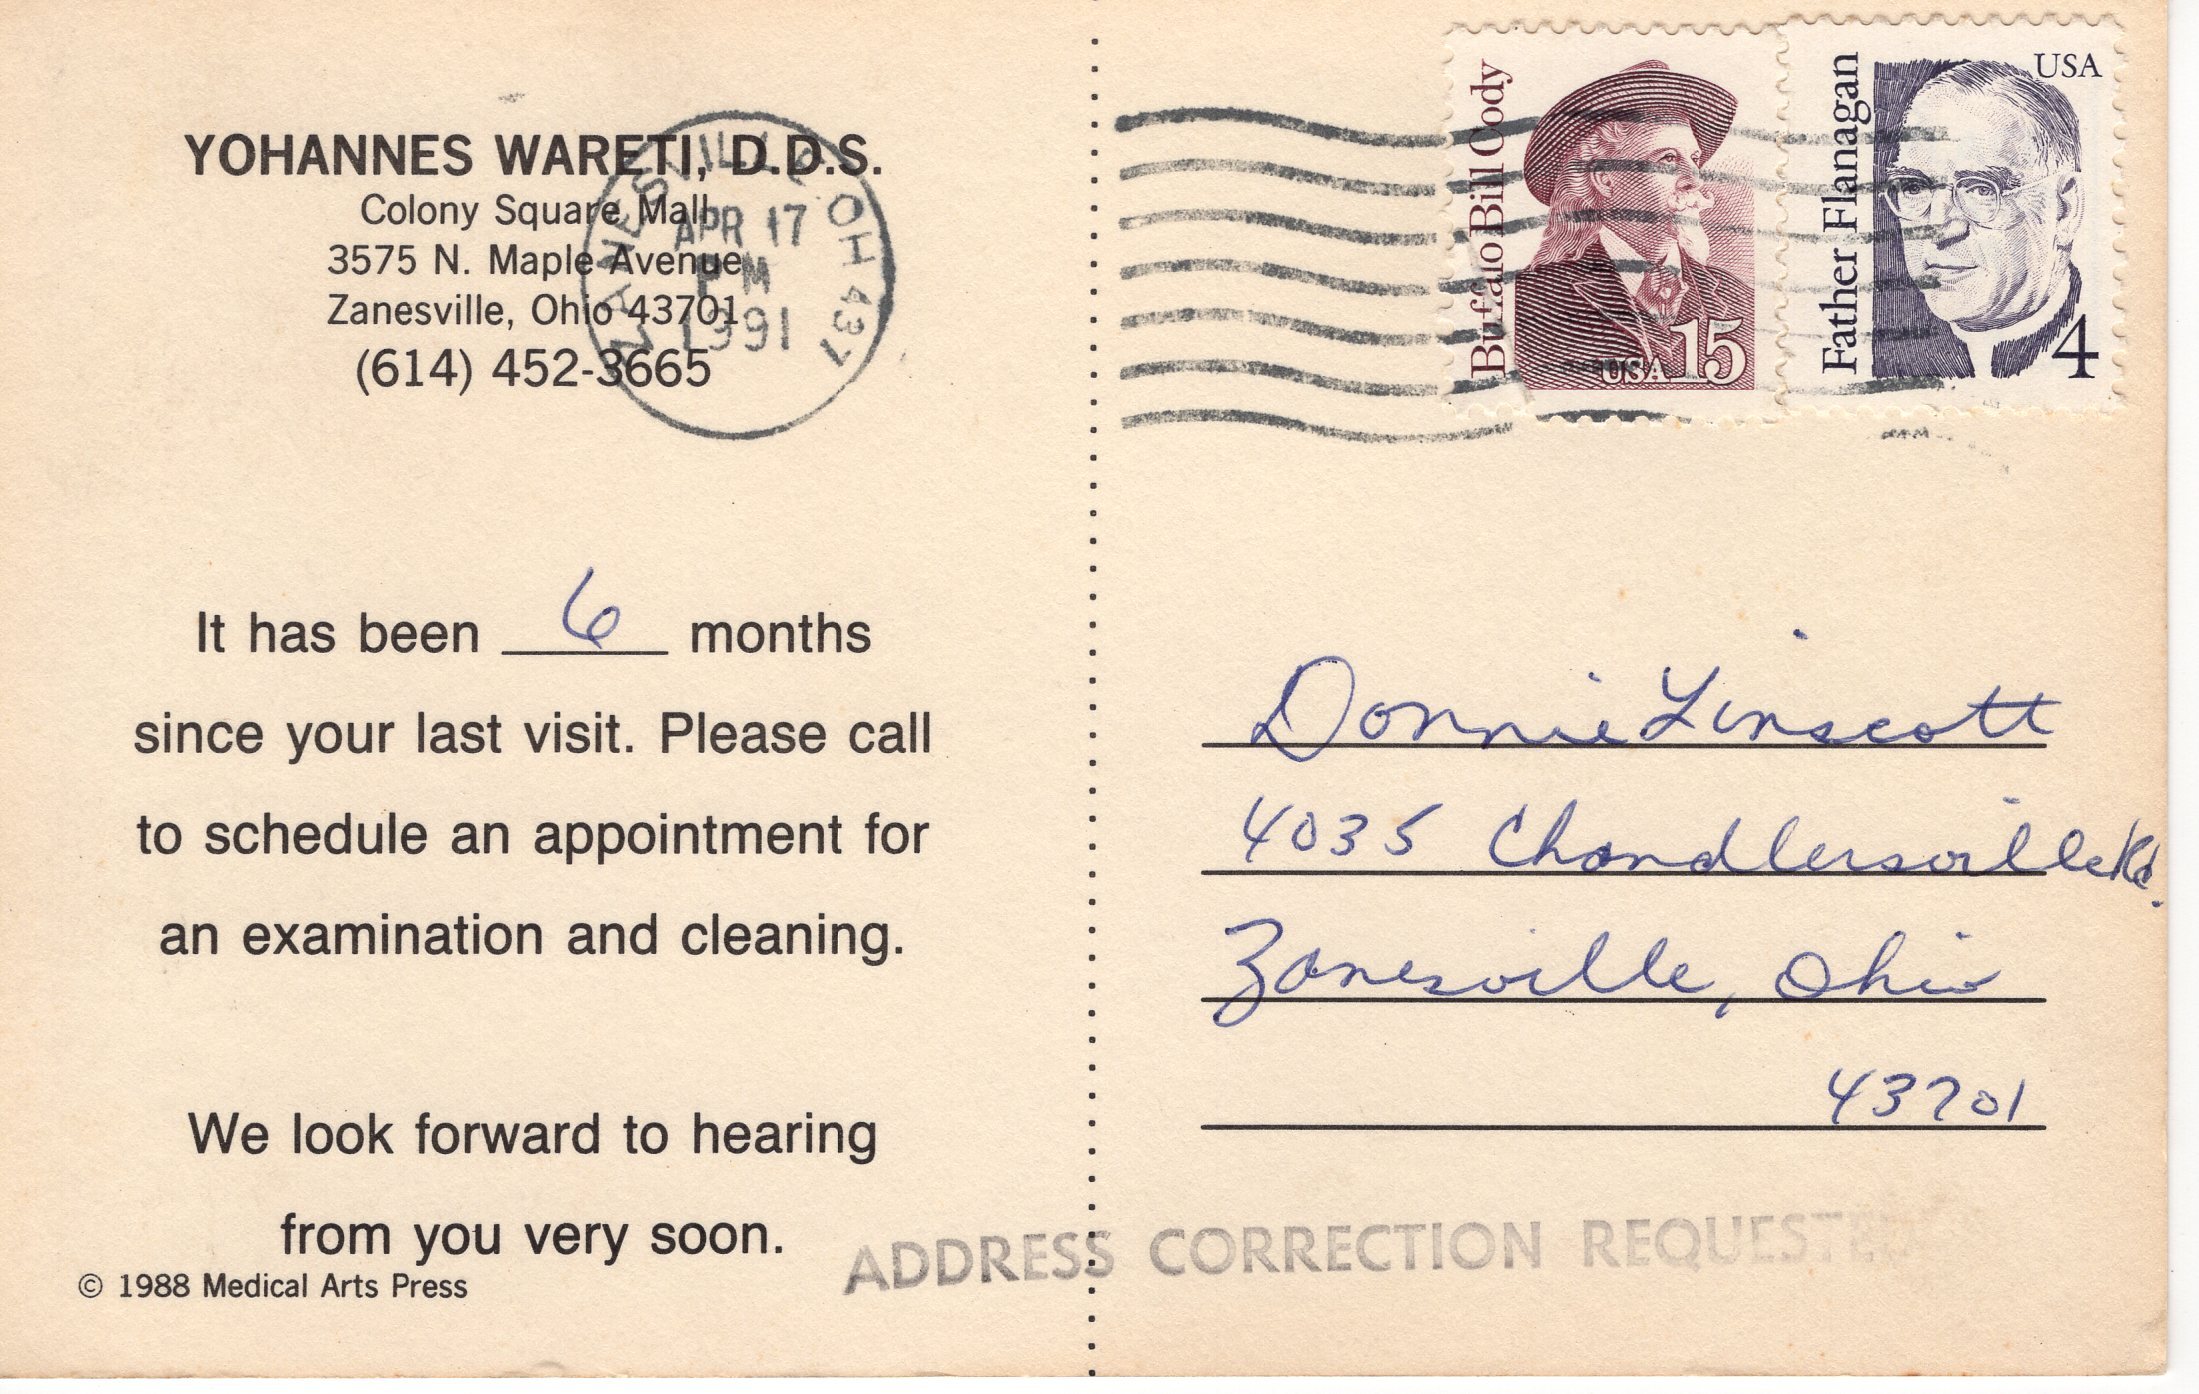 YOHANNES WARETI, D.D.S.
Colony Square Mall
3575 N. Maple Avenue
Zanesville, Ohio 43701
(614) 452-3665
ZANESVILLE OH 437
APR 17
PM
1991
Buffalo Bill Cody
USA 15
Father Flanagan
USA
4
It has been 6 months
since your last visit. Please call
to schedule an appointment for
an examination and cleaning.
We look forward to hearing
from you very soon.
© 1988 Medical Arts Press
Donnie Linscott
4035 Chandlersville Rd.
Zanesville, Ohio
43701
ADDRESS CORRECTION REQUESTED